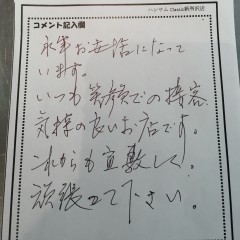 ハンサム Classic新所沢店
コメント記入欄
永年お世話になって
います。
いつも笑顔での接客
気持の良いお店です。
これからも宜敷しく!
頑張って下さい。